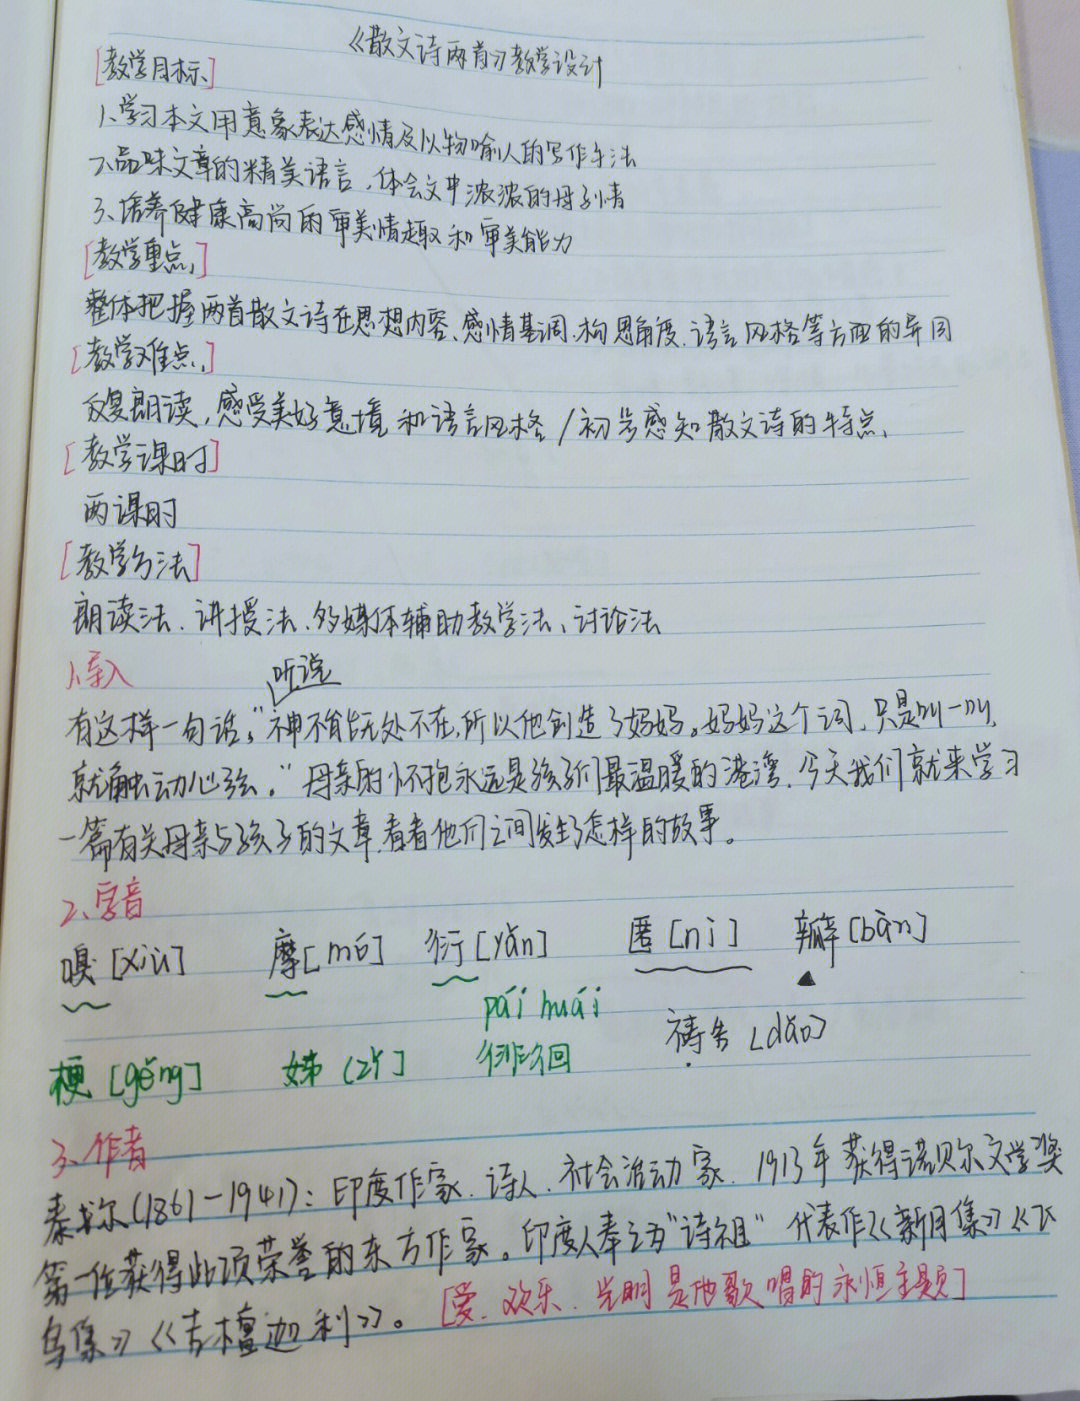 《散文诗两首》教学设计
[教学目标]
1、学习本文用意象表达感情及以物喻人的写作手法
2、品味文章的精美语言,体会文中浓浓的母子情
3、培养健康高尚的审美情趣和审美能力
[教学重点]
整体把握两首散文诗在思想内容、感情基调、构思角度、语言风格等方面的异同
[教学难点]
反复朗读,感受美好意境和语言风格/初步感知散文诗的特点、
[教学课时]
两课时
[教学方法]
朗读法、讲授法、多媒体辅助教学法、讨论法
1、导入
听说
有这样一句话。"神不能无处不在,所以他创造了妈妈。妈妈这个词,只是叫一叫,
就触动心弦。"母亲的怀抱永远是孩子们最温暖的港湾,今天我们就来学习
一篇有关母亲与孩子的文章,看看他们之间发生了怎样的故事。
2、字音
嗅[xiù] 摩[mó] 衍[yǎn] 匿[nì] 瓣[bàn]
pái huái
梗[gěng] 姊(zǐ] 徘徊 祷告[dǎo]
3、作者
泰戈尔(1861-1941):印度作家、诗人、社会活动家、1913年获得诺贝尔文学奖
第一位获得此项荣誉的东方作家。印度人奉之为"诗祖" 代表作《新月集》《飞
鸟集》《吉檀迦利》。[爱、欢乐、光明是他歌唱的永恒主题]